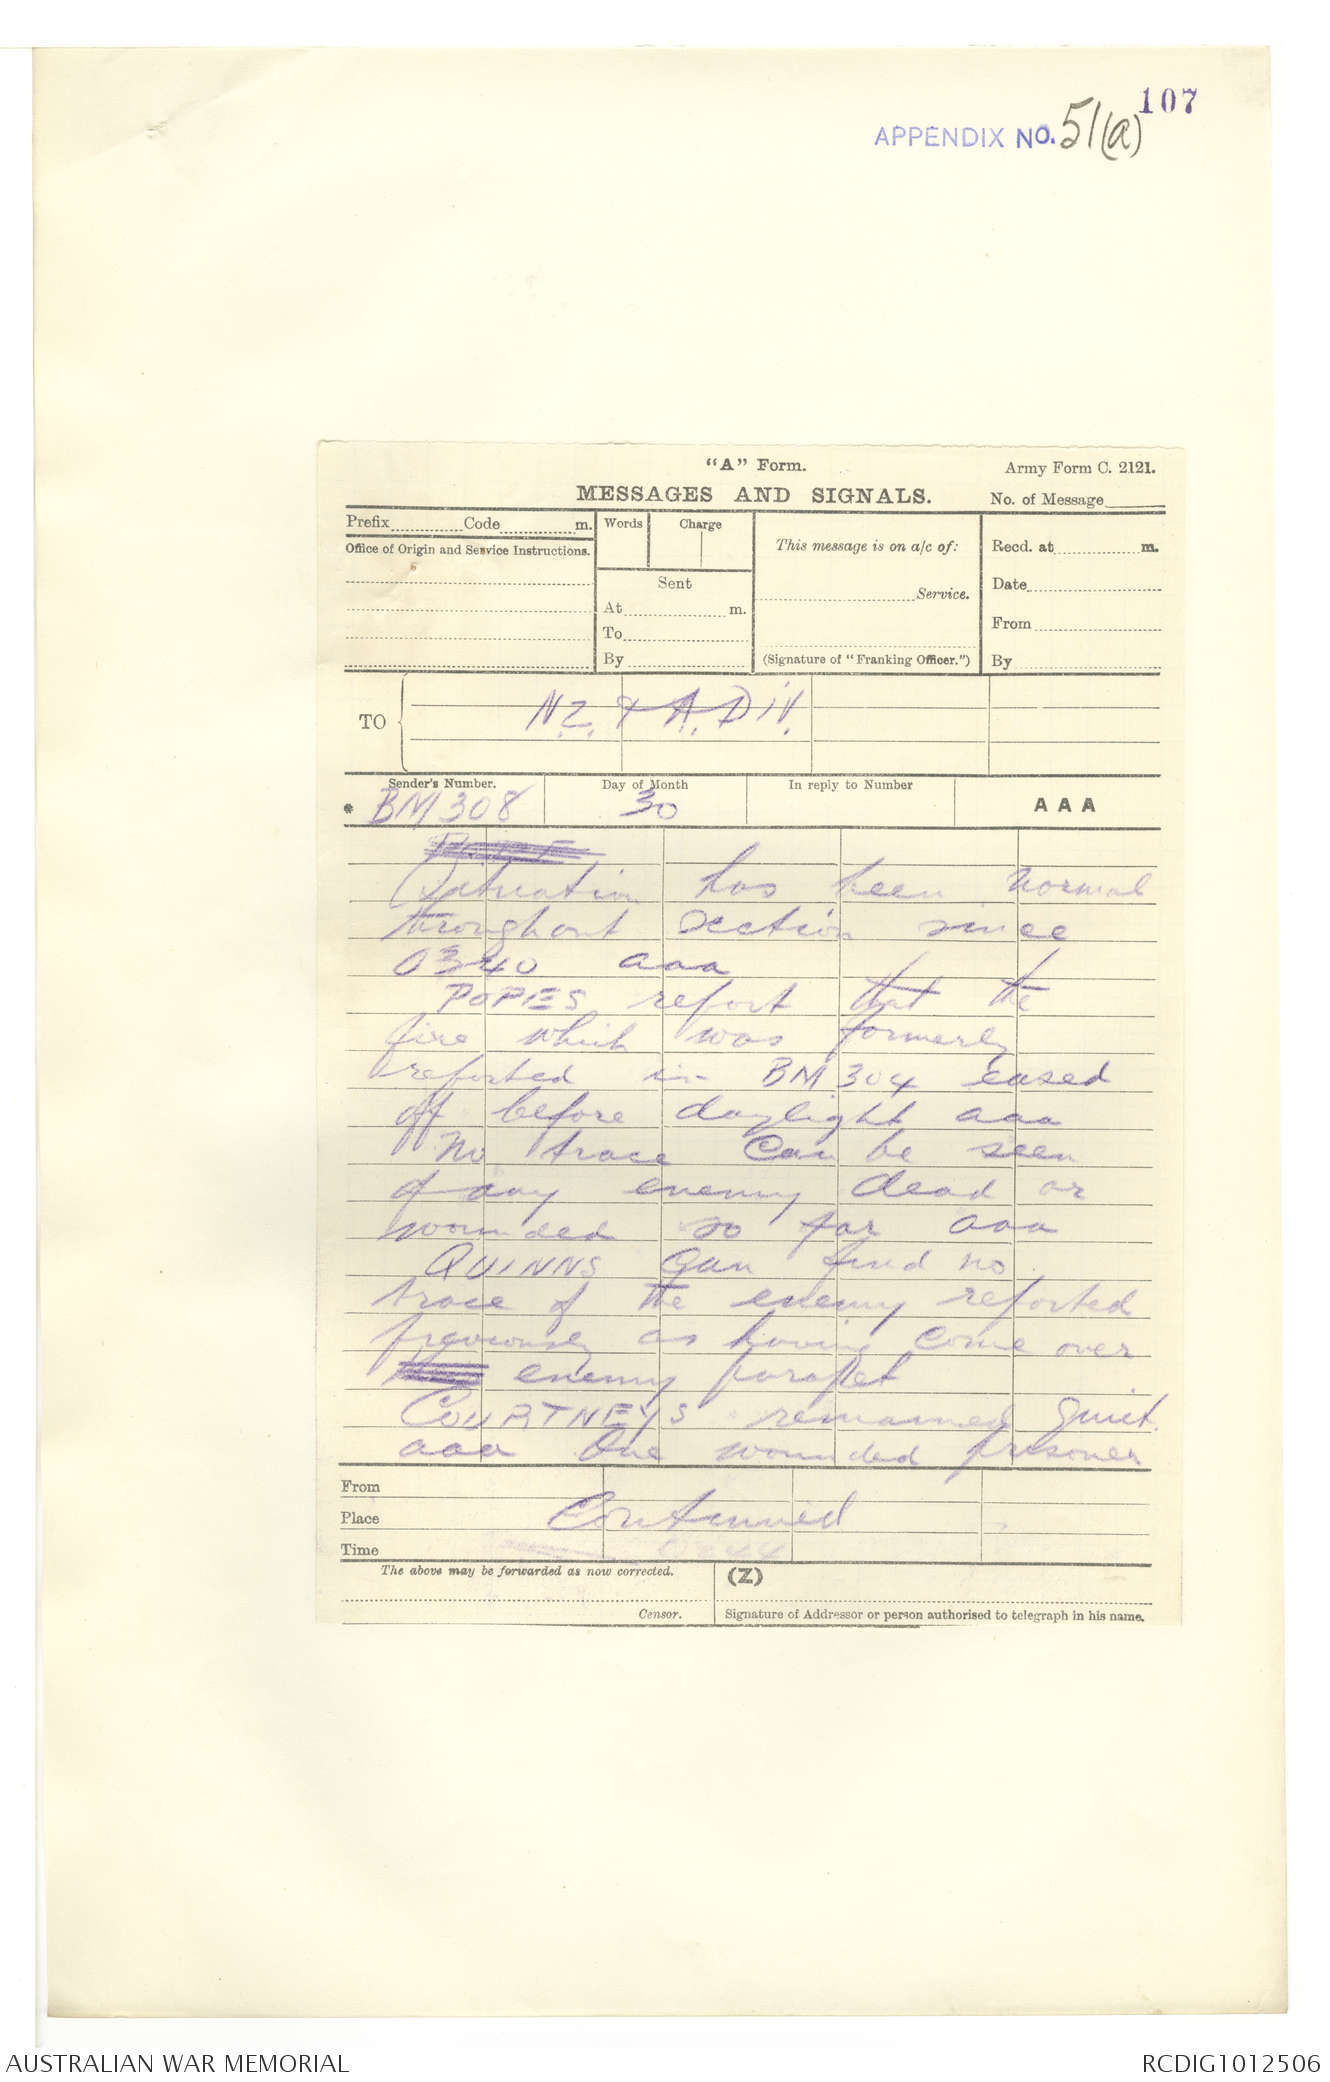 107
APPENDIX NO. 51(a)
"A" Form.
Army Form C. 2121.
MESSAGES AND SIGNALS.
No. of Message
Prefix Code m.
Words
Charge
This message is on a/c of:
Recd. at m.
Office of Origin and Service Instructions.
Sent
Service.
Date
At m.
From
To
By
(Signature of "Franking Officer.")
By
TO
N.Z. & A. DIV.
Sender's Number.
Day of Month
In reply to Number
AAA
* BM 308
30
Situation has been normal
throughout section since
0340 aaa
POPES report that the
fire which was formerly
reported in BM 304 eased
off before daylight aaa
No trace can be seen
of any enemy dead or
wounded so far aaa
QUINNS can find no
trace of the enemy reported
previously as having come over
enemy parapet
COURTNEYS remained quiet
aaa One wounded prisoner
From
Place
Continued
Time
The above may be forwarded as now corrected.
(Z)
Censor.
Signature of Addressor or person authorised to telegraph in his name.
AUSTRALIAN WAR MEMORIAL
RCDIG1012506